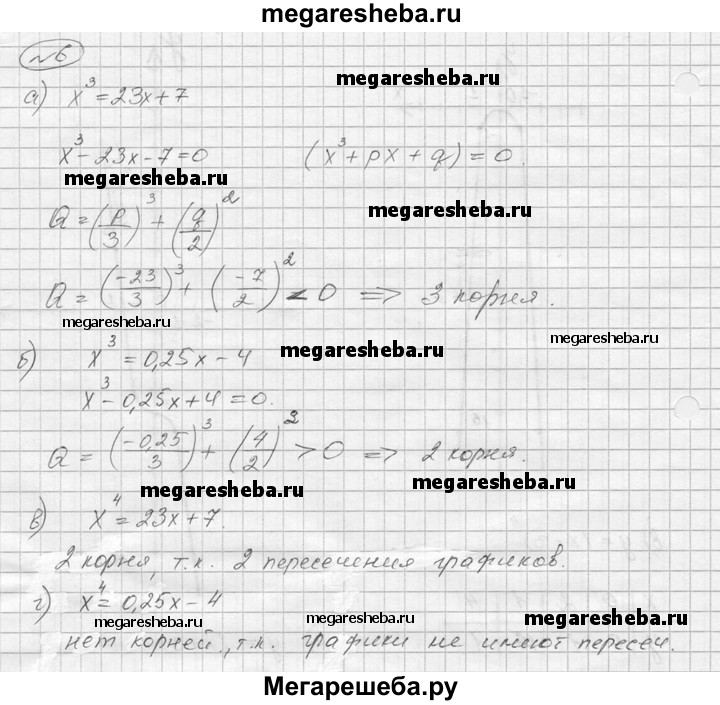 megaresheba.ru
№6
megaresheba.ru
а) x³ = 23x + 7
x³ - 23x - 7 = 0 (x³ + px + q) = 0.
megaresheba.ru
megaresheba.ru
Q = (p/3)³ + (q/2)²
Q = (-23/3)³ + (-7/2)² < 0 => 3 корня.
megaresheba.ru
megaresheba.ru
megaresheba.ru
б) x³ = 0,25x - 4
x³ - 0,25x + 4 = 0.
Q = (-0,25/3)³ + (4/2)² > 0 => 2 корня.
megaresheba.ru
megaresheba.ru
в) x⁴ = 23x + 7.
2 корня, т.к. 2 пересечения графиков.
г) x⁴ = 0,25x - 4
megaresheba.ru
megaresheba.ru
megaresheba.ru
нет корней, т.к. графики не имеют пересеч.
Мегарешеба.ру